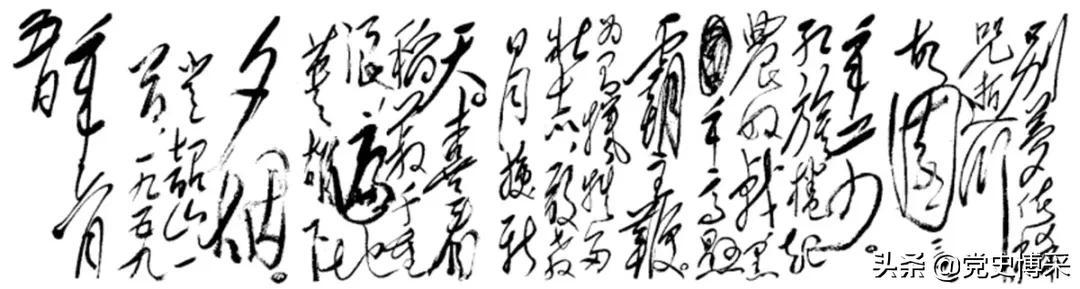 别梦依稀
咒逝川
故园三
十二年前。
红旗捲起
農奴戟黑
手高悬
霸主鞭。
为有牺牲多
壮志敢教
日月换新
天。喜看
稻菽千重
浪遍地
英雄下
夕烟。
登韶山一
首.一九五九
年六月
头条 @党史博采